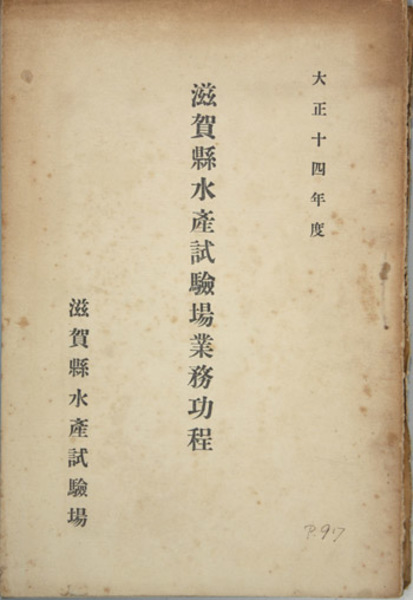 大正十四年度
滋賀縣水產試驗場業務功程
滋賀縣水產試驗場
P.97